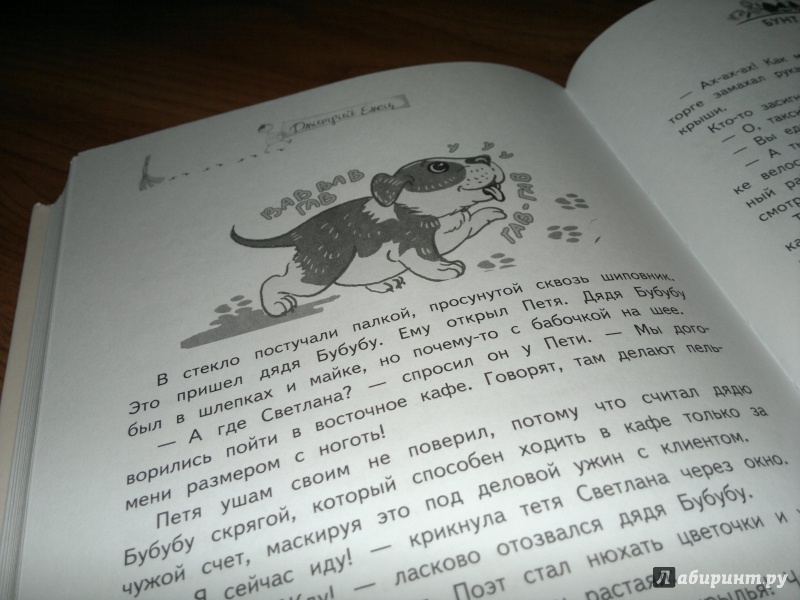 Дмитрий Емец
ГАВ ГАВ
ГАВ
ГАВ-ГАВ
В стекло постучали палкой, просунутой сквозь шиповник.
Это пришел дядя Бубубу. Ему открыл Петя. Дядя Бубубу
был в шлепках и майке, но почему-то с бабочкой на шее.
— А где Светлана? — спросил он у Пети. — Мы дого-
ворились пойти в восточное кафе. Говорят, там делают пель-
мени размером с ноготь!
Петя ушам своим не поверил, потому что считал дядю
Бубубу скрягой, который способен ходить в кафе только за
чужой счет, маскируя это под деловой ужин с клиентом.
Я сейчас иду! — крикнула тетя Светлана через окно.
— ласково отозвался дядя Бубубу.
Поэт стал нюхать цветочки и
БУНТ
— Ах-ах-ах! Как
торге замахал
крыши.
Кто-то
— О,
— Вы
— А
ке
ный
Лабиринт.ру